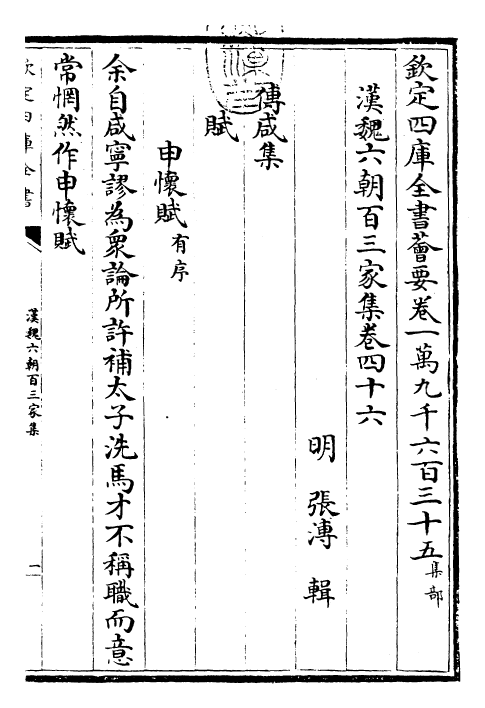 欽定四庫全書薈要卷一萬九千六百三十五集部
漢魏六朝百三家集卷四十六
明 張溥 輯
傅咸集
賦
申懷賦有序
余自咸寧謬為衆論所許補太子洗馬才不稱職而意
常惘然作申懷賦
欽定四庫全書
漢魏六朝百三家集
一